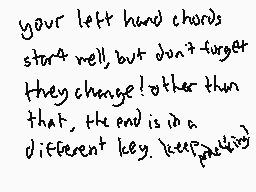 your left hand chords
start well, but don't forget
they change! other than
that, the end is in a
different key. keep practicing!